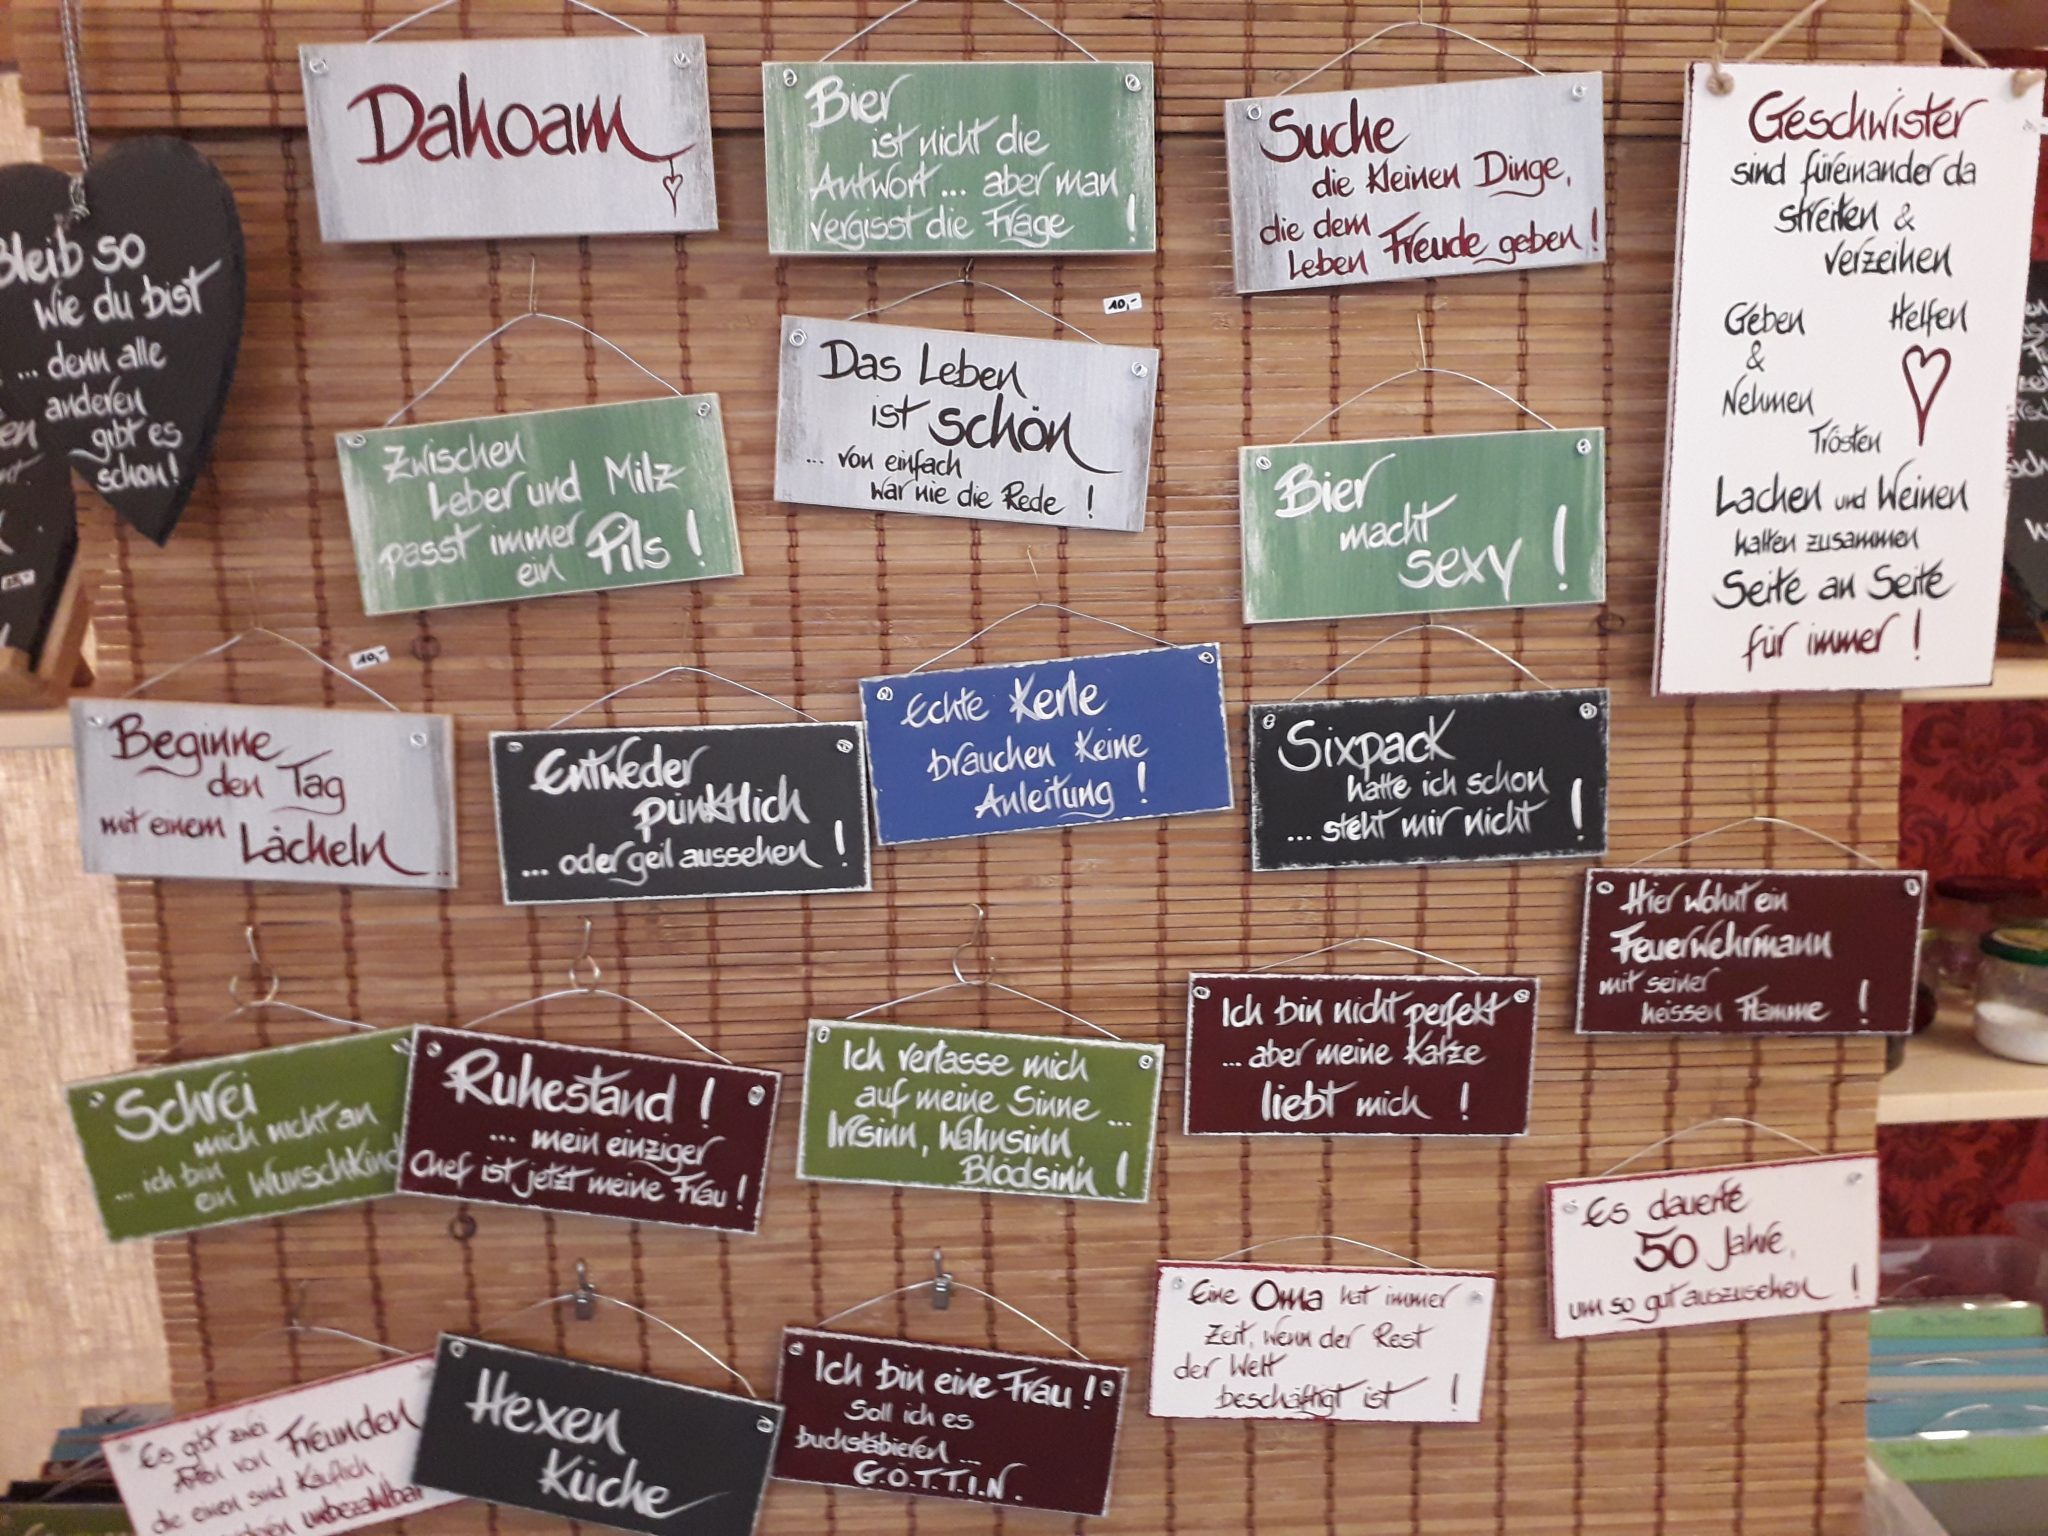 Dahoam
Bier
ist nicht die
Antwort... aber man
vergisst die Frage !
Suche
die kleinen Dinge,
die dem
Leben Freude geben!
Geschwister
sind füreinander da
streiten &
verzeihen
Geben
&
Nehmen
Helfen
Trösten
Lachen und Weinen
halten zusammen
Seite an Seite
für immer !
Bleib so
wie du bist
... denn alle
anderen
gibt es
schon!
10,-
Zwischen
Leber und Milz
passt immer
ein Pils !
Das Leben
ist schön
... von einfach
war nie die Rede !
Bier
macht
sexy !
10,-
Beginne
den Tag
mit einem Lächeln...
Entweder
pünktlich
... oder geil aussehen !
Echte Kerle
brauchen keine
Anleitung !
Sixpack
hatte ich schon
... steht mir nicht !
Hier wohnt ein
Feuerwehrmann
mit seiner
heissen Flamme !
Schrei
mich nicht an
... ich bin
ein Wunschkind
Ruhestand !
... mein einziger
Chef ist jetzt meine Frau !
Ich verlasse mich
auf meine Sinne ...
Irrsinn, Wahnsinn,
Blödsinn !
Ich bin nicht perfekt
... aber meine Katze
liebt mich !
Es dauerte
50 Jahre,
um so gut auszusehen !
Es gibt zwei
Arten von Freunden
die einen sind käuflich
unbezahlbar
Hexen
Küche
Ich bin eine Frau !
Soll ich es
buchstabieren ...
G.Ö.T.T.I.N.
Eine Oma hat immer
Zeit, wenn der Rest
der Welt
beschäftigt ist !